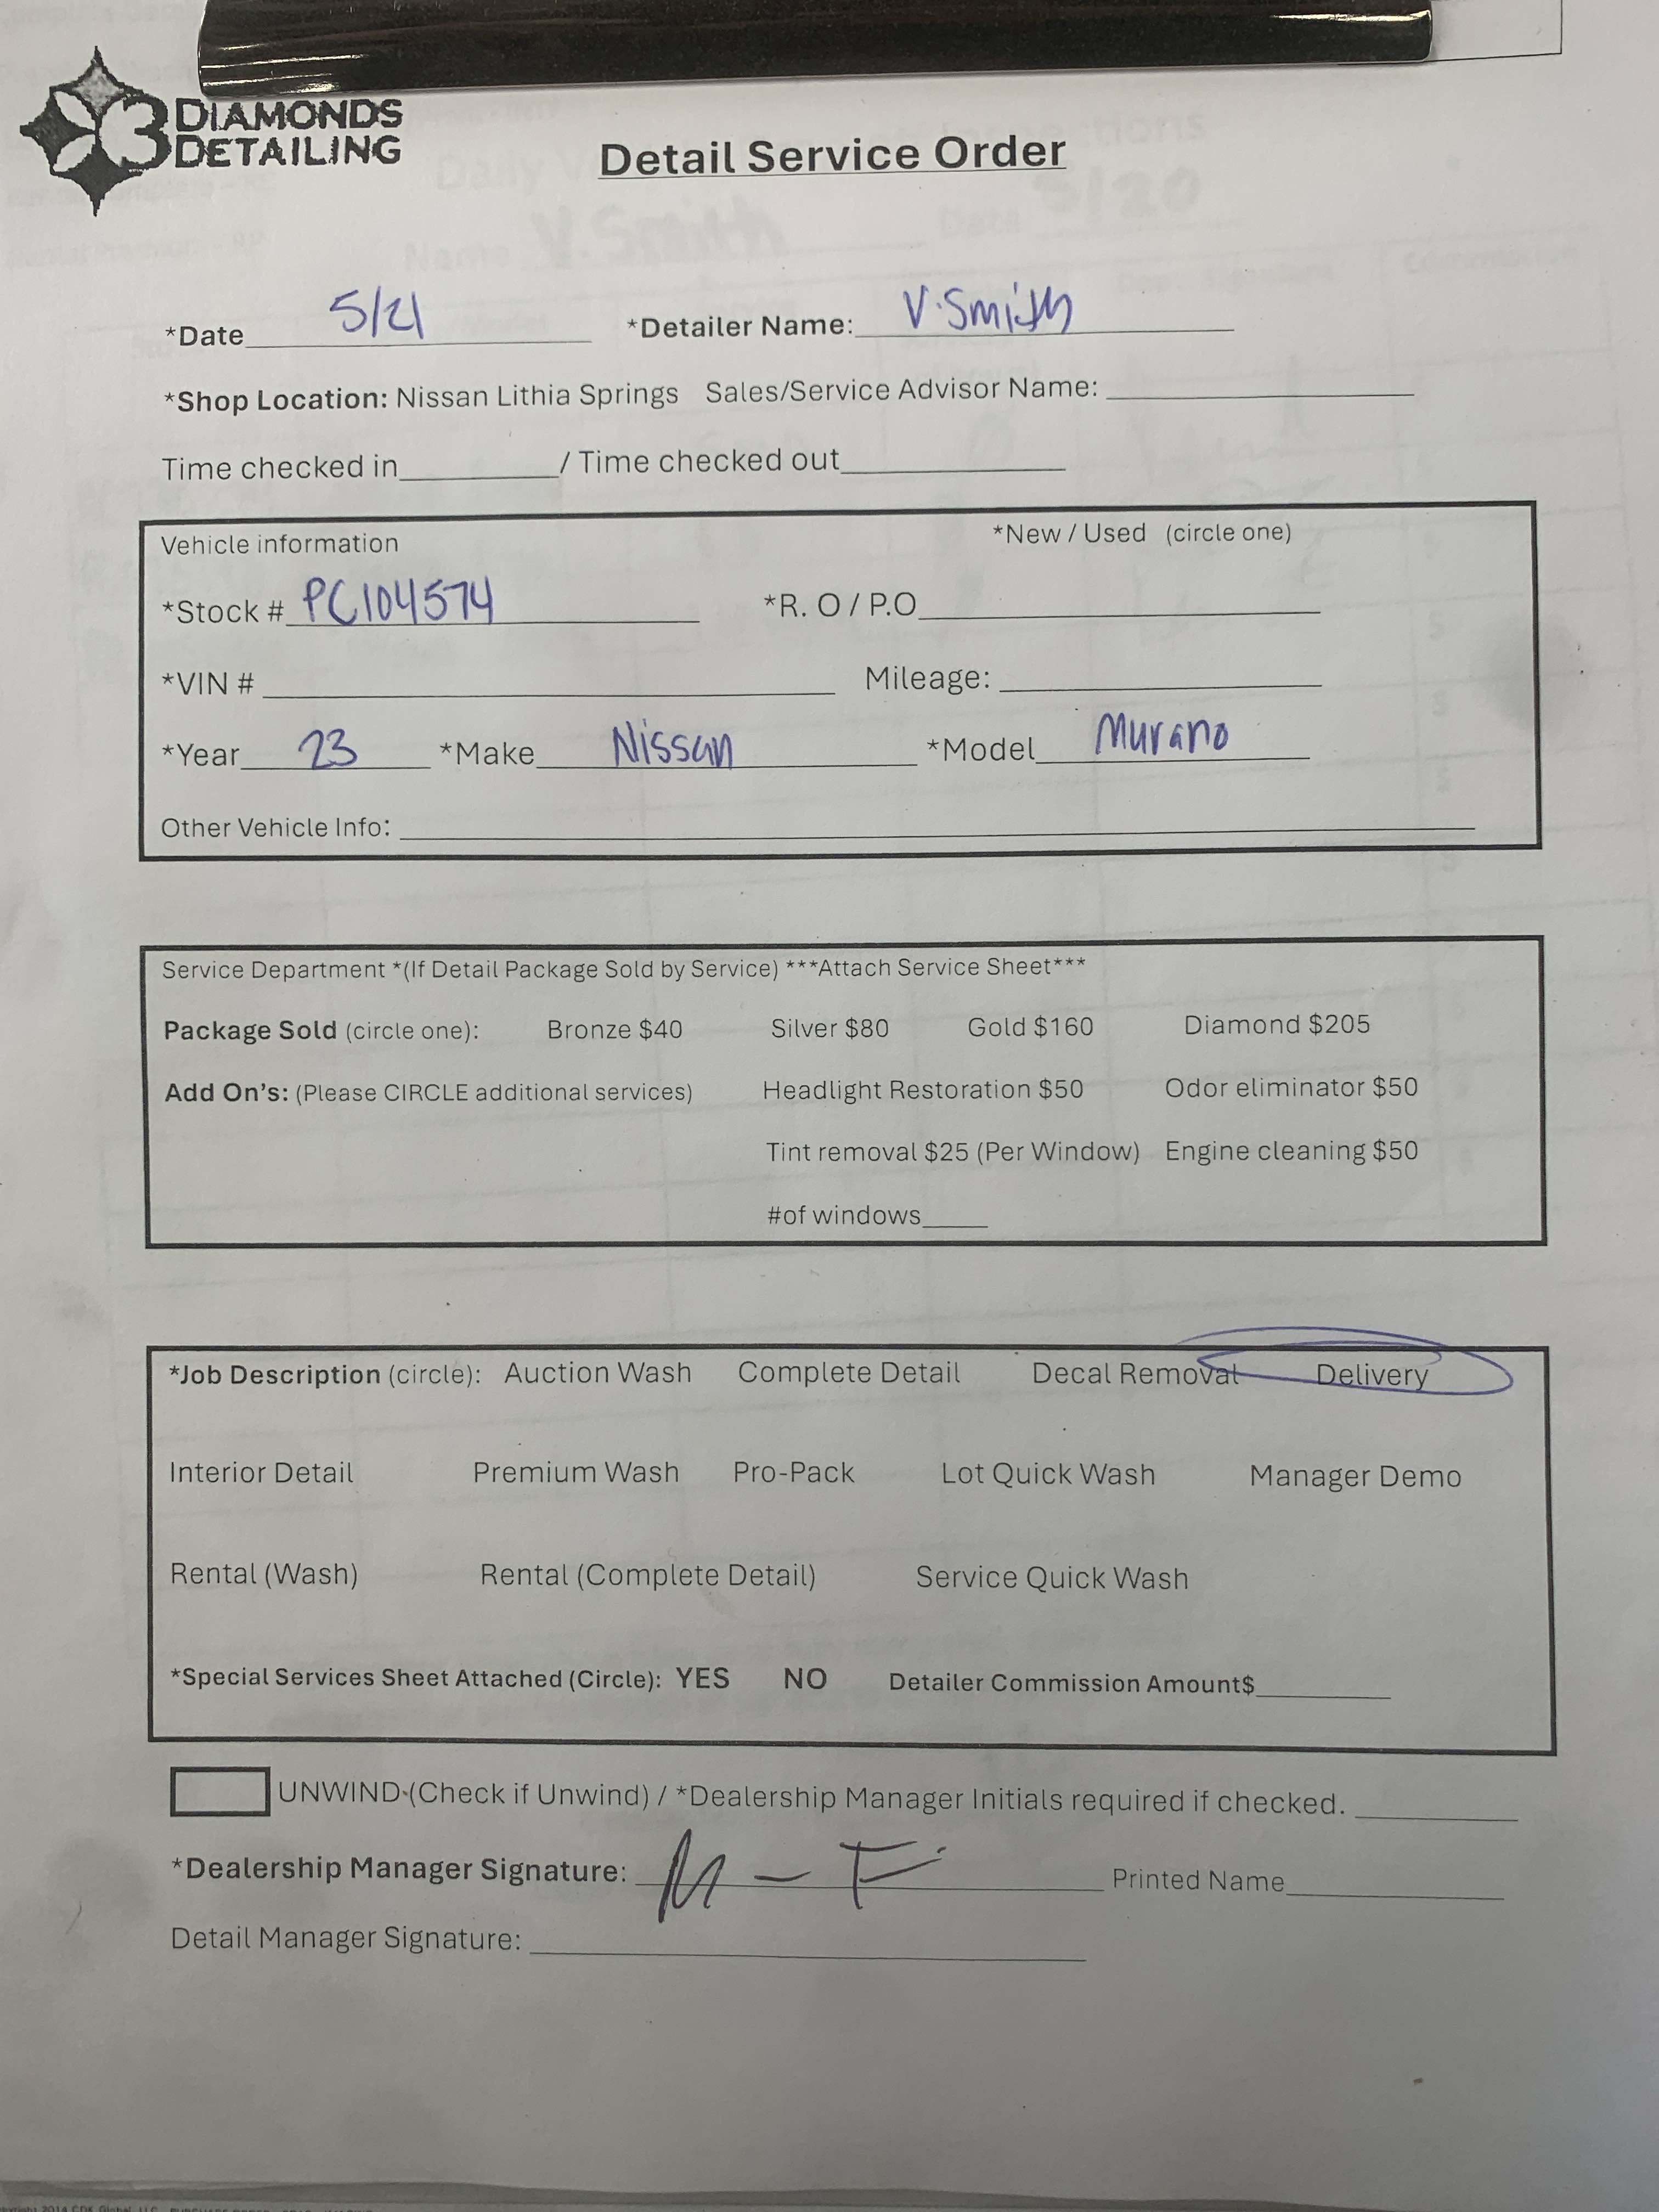 3 DIAMONDS
DETAILING
Detail Service Order
*Date 5/21 *Detailer Name: V. Smith
*Shop Location: Nissan Lithia Springs Sales/Service Advisor Name:
Time checked in / Time checked out
Vehicle information *New / Used (circle one)
*Stock # PC104574 *R. O / P.O
*VIN # Mileage:
*Year 23 *Make Nissan *Model Murano
Other Vehicle Info:
Service Department *(If Detail Package Sold by Service) ***Attach Service Sheet***
Package Sold (circle one): Bronze $40 Silver $80 Gold $160 Diamond $205
Add On's: (Please CIRCLE additional services) Headlight Restoration $50 Odor eliminator $50
Tint removal $25 (Per Window) Engine cleaning $50
#of windows
*Job Description (circle): Auction Wash Complete Detail Decal Removal Delivery
Interior Detail Premium Wash Pro-Pack Lot Quick Wash Manager Demo
Rental (Wash) Rental (Complete Detail) Service Quick Wash
*Special Services Sheet Attached (Circle): YES NO Detailer Commission Amount$
UNWIND (Check if Unwind) / *Dealership Manager Initials required if checked.
*Dealership Manager Signature: Printed Name
Detail Manager Signature: